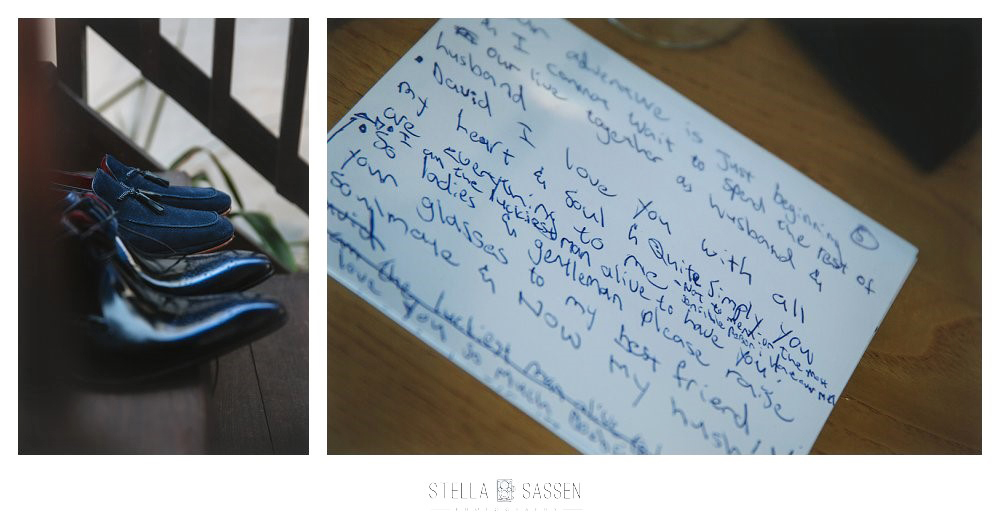 an adventure is Just beginning
& I cannot wait to spend the rest of
our live together as husband &
husband
5
• David I love you with all
my heart & Soul & Quite Simply you
are everything to me Not to mention the most
sensible person i have ever met
I am the luckiest man alive to have you.
• So ladies & gentleman please raise
your glasses to my best friend
soulmate & Now my husb
with
am they luckiest man alive to
love you so much
STELLA SASSEN
PHOTOGRAPHY